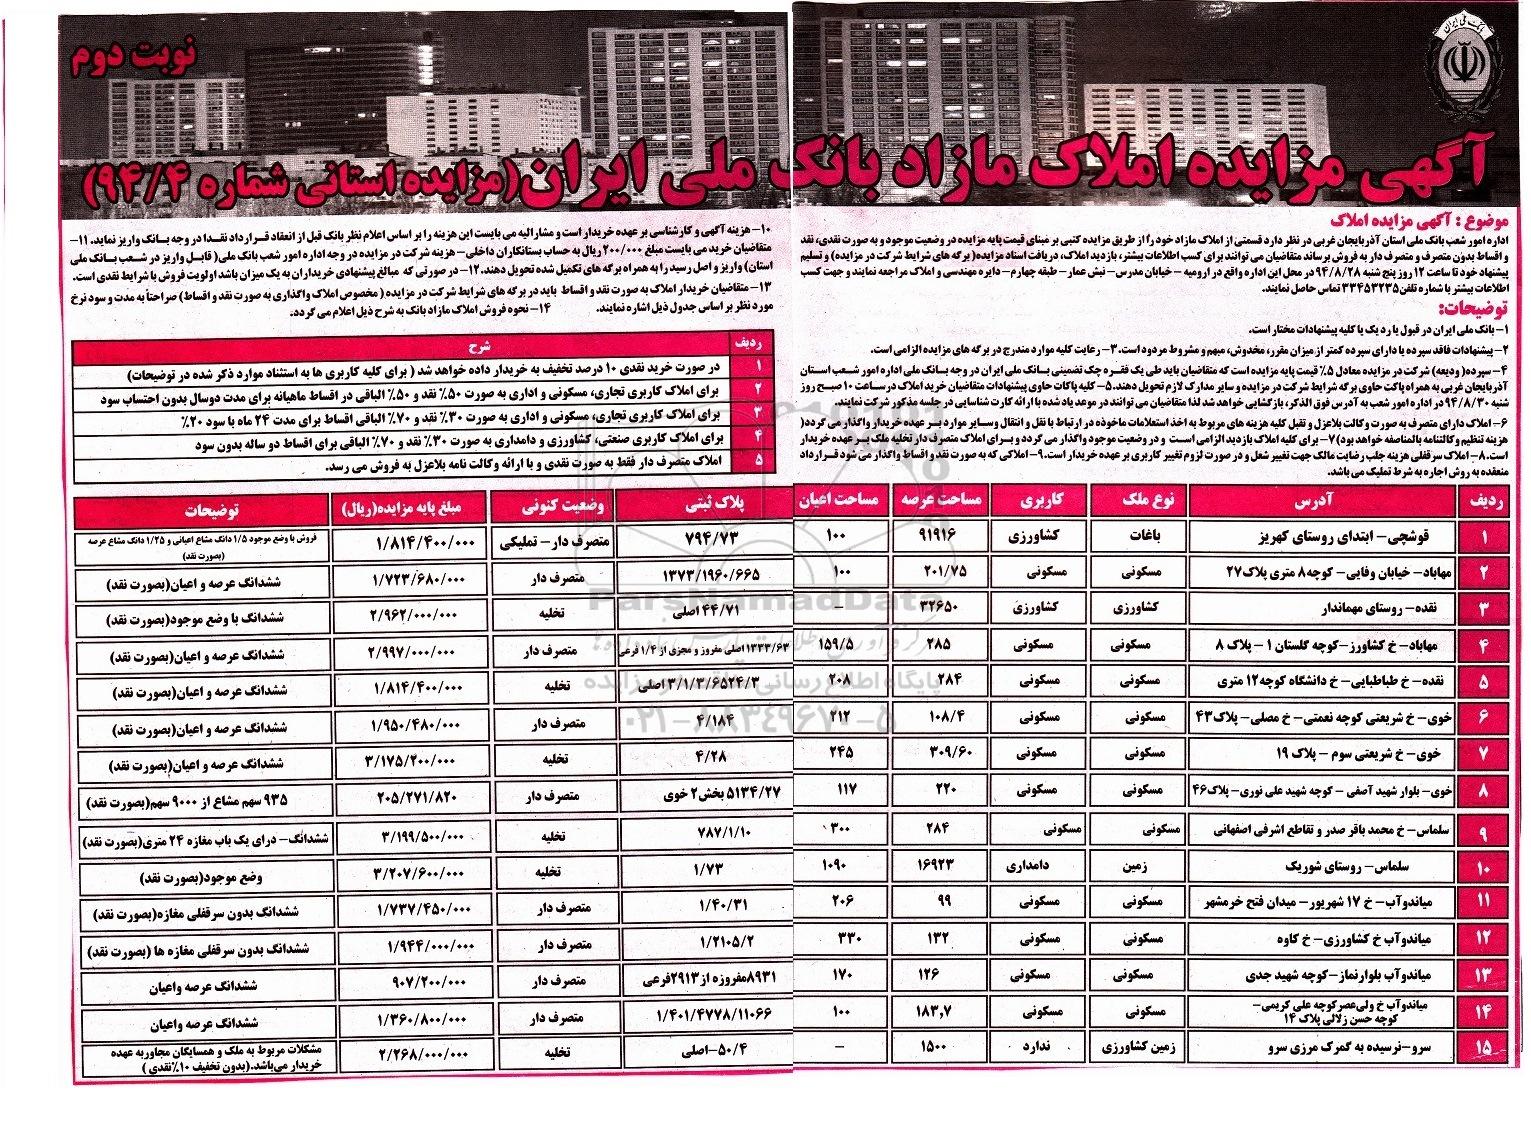 نوبت دوم
آگهی مزایده املاک مازاد بانک ملی ایران(مزایده استانی شماره ۹۴/۴)
موضوع : آگهی مزایده املاک
اداره امور شعب بانک ملی استان آذربایجان غربی در نظر دارد قسمتی از املاک مازاد خود را از طریق مزایده کتبی بر مبنای قیمت پایه مزایده در وضعیت موجود و به صورت نقدی، نقد
و اقساط بدون متصرف و متصرف دار به فروش برساند متقاضیان می توانند برای کسب اطلاعات بیشتر، بازدید املاک، دریافت اسناد مزایده( برگه های شرایط شرکت در مزایده) و تسلیم
پیشنهاد خود تا ساعت ۱۲ روز پنج شنبه ۹۴/۸/۲۸ در محل این اداره واقع در ارومیه – خیابان مدرس– نبش عمار– طبقه چهارم– دایره مهندسی و املاک مراجعه نمایند و جهت کسب
اطلاعات بیشتر با شماره تلفن۳۳۴۵۳۲۳۵ تماس حاصل نمایند.
توضیحات:
۱– بانک ملی ایران در قبول یا رد یک یا کلیه پیشنهادات مختار است.
۲– پیشنهادات فاقد سپرده یا دارای سپرده کمتر از میزان مقرر، مخدوش، مبهم و مشروط مردود است. ۳– رعایت کلیه موارد مندرج در برگه های مزایده الزامی است.
۴– سپرده( ودیعه) شرکت در مزایده معادل ۵٪ قیمت پایه مزایده است که متقاضیان باید طی یک فقره چک تضمینی بانک ملی ایران در وجه بانک ملی اداره امور شعب استان
آذربایجان غربی به همراه پاکت حاوی برگه شرایط شرکت در مزایده و سایر مدارک لازم تحویل دهند. ۵– کلیه پاکات حاوی پیشنهادات متقاضیان خرید املاک در ساعت ۱۰ صبح روز
شنبه ۹۴/۸/۳۰ در اداره امور شعب به آدرس فوق الذکر، بازگشایی خواهد شد لذا متقاضیان می توانند در موعد یاد شده با ارائه کارت شناسایی در جلسه مذکور شرکت نمایند.
۶– املاک دارای متصرف به صورت وکالت بلاعزل و تقبل کلیه هزینه های مربوط به اخذ استعلامات ماخوذه در ارتباط با نقل و انتقال وسایر موارد بر عهده خریدار واگذار می گردد(
هزینه تنظیم وکالتنامه بالمناصفه خواهد بود) ۷– برای کلیه املاک بازدید الزامی است و در وضعیت موجود واگذار می گردد و برای املاک متصرف دار تخلیه ملک بر عهده خریدار
است. ۸– املاک سرقفلی هزینه جلب رضایت مالک جهت تغییر شغل و در صورت لزوم تغییر کاربری بر عهده خریدار است. ۹– املاکی که به صورت نقد و اقساط واگذار می شود قرارداد
منعقده به روش اجاره به شرط تملیک می باشد.
۱۰– هزینه آگهی و کارشناسی بر عهده خریدار است و مشارالیه می بایست این هزینه را بر اساس اعلام نظر بانک قبل از انعقاد قرارداد نقدا در وجه بانک واریز نماید. ۱۱–
متقاضیان خرید می بایست مبلغ ۲۰۰/۰۰۰ ریال به حساب بستانکاران داخلی– هزینه شرکت در مزایده در وجه اداره امور شعب بانک ملی( قابل واریز در شعب بانک ملی
استان) واریز و اصل رسید را به همراه برگه های تکمیل شده تحویل دهند. ۱۲– در صورتی که مبالغ پیشنهادی خریداران به یک میزان باشد اولویت فروش با شرایط نقدی است.
۱۳– متقاضیان خریدار املاک به صورت نقد و اقساط باید در برگه های شرایط شرکت در مزایده ( مخصوص املاک واگذاری به صورت نقد و اقساط) صراحتاً به مدت و سود نرخ
مورد نظر بر اساس جدول ذیل اشاره نمایند. ۱۴– نحوه فروش املاک مازاد بانک به شرح ذیل اعلام می گردد.
ردیف شرح
۱ در صورت خرید نقدی ۱۰ درصد تخفیف به خریدار داده خواهد شد ( برای کلیه کاربری ها به استثناد موارد ذکر شده در توضیحات)
۲ برای املاک کاربری تجاری، مسکونی و اداری به صورت ۵۰٪ نقد و ۵۰٪ الباقی در اقساط ماهیانه برای مدت دوسال بدون احتساب سود
۳ برای املاک کاربری تجاری، مسکونی و اداری به صورت ۳۰٪ نقد و ۷۰٪ الباقی اقساط برای مدت ۲۴ ماه با سود ۲۰٪
۴ برای املاک کاربری صنعتی، کشاورزی و دامداری به صورت ۳۰٪ نقد و ۷۰٪ الباقی برای اقساط دو ساله بدون سود
۵ املاک متصرف دار فقط به صورت نقدی و با ارائه وکالت نامه بلاعزل به فروش می رسد.
ردیف آدرس نوع ملک کاربری مساحت عرصه مساحت اعیان پلاک ثبتی وضعیت کنونی مبلغ پایه مزایده(ریال) توضیحات
۱ قوشچی– ابتدای روستای کهریز باغات کشاورزی ۹۱۹۱۶ ۱۰۰ ۷۹۴/۷۳ متصرف دار– تملیکی ۱/۸۱۴/۴۰۰/۰۰۰ فروش با وضع موجود ۱/۵ دانگ مشاع اعیانی و ۱/۲۵ دانگ مشاع عرصه (بصورت نقد)
۲ مهاباد– خیابان وفایی– کوچه۸ متری پلاک۲۷ مسکونی مسکونی ۲۰۱/۷۵ ۱۰۰ ۱۳۷۳/۱۹۶۰/۶۶۵ متصرف دار ۱/۷۲۳/۶۸۰/۰۰۰ ششدانگ عرصه و اعیان(بصورت نقد)
۳ نقده– روستای مهماندار کشاورزی کشاورزی ۳۲۶۵۰ – ۴۴/۷۱ اصلی تخلیه ۲/۹۶۲/۰۰۰/۰۰۰ ششدانگ با وضع موجود(بصورت نقد)
۴ مهاباد– خ کشاورز–کوچه گلستان ۱ – پلاک ۸ مسکونی مسکونی ۲۸۵ ۱۵۹/۵ ۱۳۳۳/۶۳ اصلی مفروز و مجزی از ۱/۴ فرعی متصرف دار ۲/۹۹۷/۰۰۰/۰۰۰ ششدانگ عرصه و اعیان(بصورت نقد)
۵ نقده– خ طباطبایی– خ دانشگاه کوچه۱۲ متری مسکونی مسکونی ۲۸۴ ۲۰۸ ۳/۱/۳/۶۵۲۴/۳ اصلی تخلیه ۱/۸۱۴/۴۰۰/۰۰۰ ششدانگ عرصه و اعیان(بصورت نقد)
۶ خوی– خ شریعتی کوچه نعمتی– خ مصلی– پلاک۴۳ مسکونی مسکونی ۱۰۸/۴ ۲۱۲ ۴/۱۸۴ متصرف دار ۱/۹۵۰/۴۸۰/۰۰۰ ششدانگ عرصه و اعیان(بصورت نقد)
۷ خوی– خ شریعتی سوم – پلاک ۱۹ مسکونی مسکونی ۳۰۹/۶۰ ۲۴۵ ۴/۲۸ تخلیه ۳/۱۷۵/۲۰۰/۰۰۰ ششدانگ عرصه و اعیان(بصورت نقد)
۸ خوی– بلوار شهید آصفی – کوچه شهید علی نوری– پلاک۴۶ مسکونی مسکونی ۲۲۰ ۱۱۷ ۵۱۳۴/۲۷ بخش۲ خوی متصرف دار ۲۰۵/۲۷۱/۸۲۰ ۹۳۵ سهم مشاع از ۹۰۰۰ سهم(بصورت نقد)
۹ سلماس– خ محمد باقر صدر و تقاطع اشرفی اصفهانی مسکونی مسکونی ۲۸۴ ۳۰۰ ۷۸۷/۱/۱۰ تخلیه ۳/۱۹۹/۵۰۰/۰۰۰ ششدانگ– درای یک باب مغازه ۲۴ متری(بصورت نقد)
۱۰ سلماس– روستای شوریک زمین دامداری ۱۶۹۲۳ ۱۰۹۰ ۱/۷۳ تخلیه ۳/۲۰۷/۶۰۰/۰۰۰ وضع موجود(بصورت نقد)
۱۱ میاندوآب– خ ۱۷ شهریور– میدان فتح خرمشهر مسکونی مسکونی ۹۹ ۲۰۶ ۱/۴۰/۳۱ متصرف دار ۱/۷۳۷/۴۵۰/۰۰۰ ششدانگ بدون سرقفلی مغازه(بصورت نقد)
۱۲ میاندوآب خ کشاورزی– خ کاوه مسکونی مسکونی ۱۳۲ ۳۳۰ ۱/۲۱۰۵/۲ متصرف دار ۱/۹۴۴/۰۰۰/۰۰۰ ششدانگ بدون سرقفلی مغازه ها (بصورت نقد)
۱۳ میاندوآب بلوارنماز–کوچه شهید جدی مسکونی مسکونی ۱۲۶ ۱۷۰ ۸۹۳۱مفروزه از۲۹۱۳فرعی متصرف دار ۹۰۷/۲۰۰/۰۰۰ ششدانگ عرصه واعیان
۱۴ میاندوآب خ ولی‌عصرکوچه علی کریمی– کوچه حسن زلالی پلاک ۱۴ مسکونی مسکونی ۱۸۳,۷ ۱۰۰ ۱/۴۰۱/۴۷۷۸/۱۱۰۶۶ متصرف دار ۱/۳۶۰/۸۰۰/۰۰۰ ششدانگ عرصه واعیان
۱۵ سرو–نرسیده به گمرک مرزی سرو زمین کشاورزی ندارد ۱۵۰۰ – ۵۰/۴–اصلی تخلیه ۲/۲۶۸/۰۰۰/۰۰۰ مشکلات مربوط به ملک و همسایگان مجاوربه عهده خریدار می‌باشد.(بدون تخفیف ۱۰٪نقدی )
ParsNamadData
پایگاه اطلاع رسانی
۰۲۱–۸۸۳۴۹۶۷۰–۵